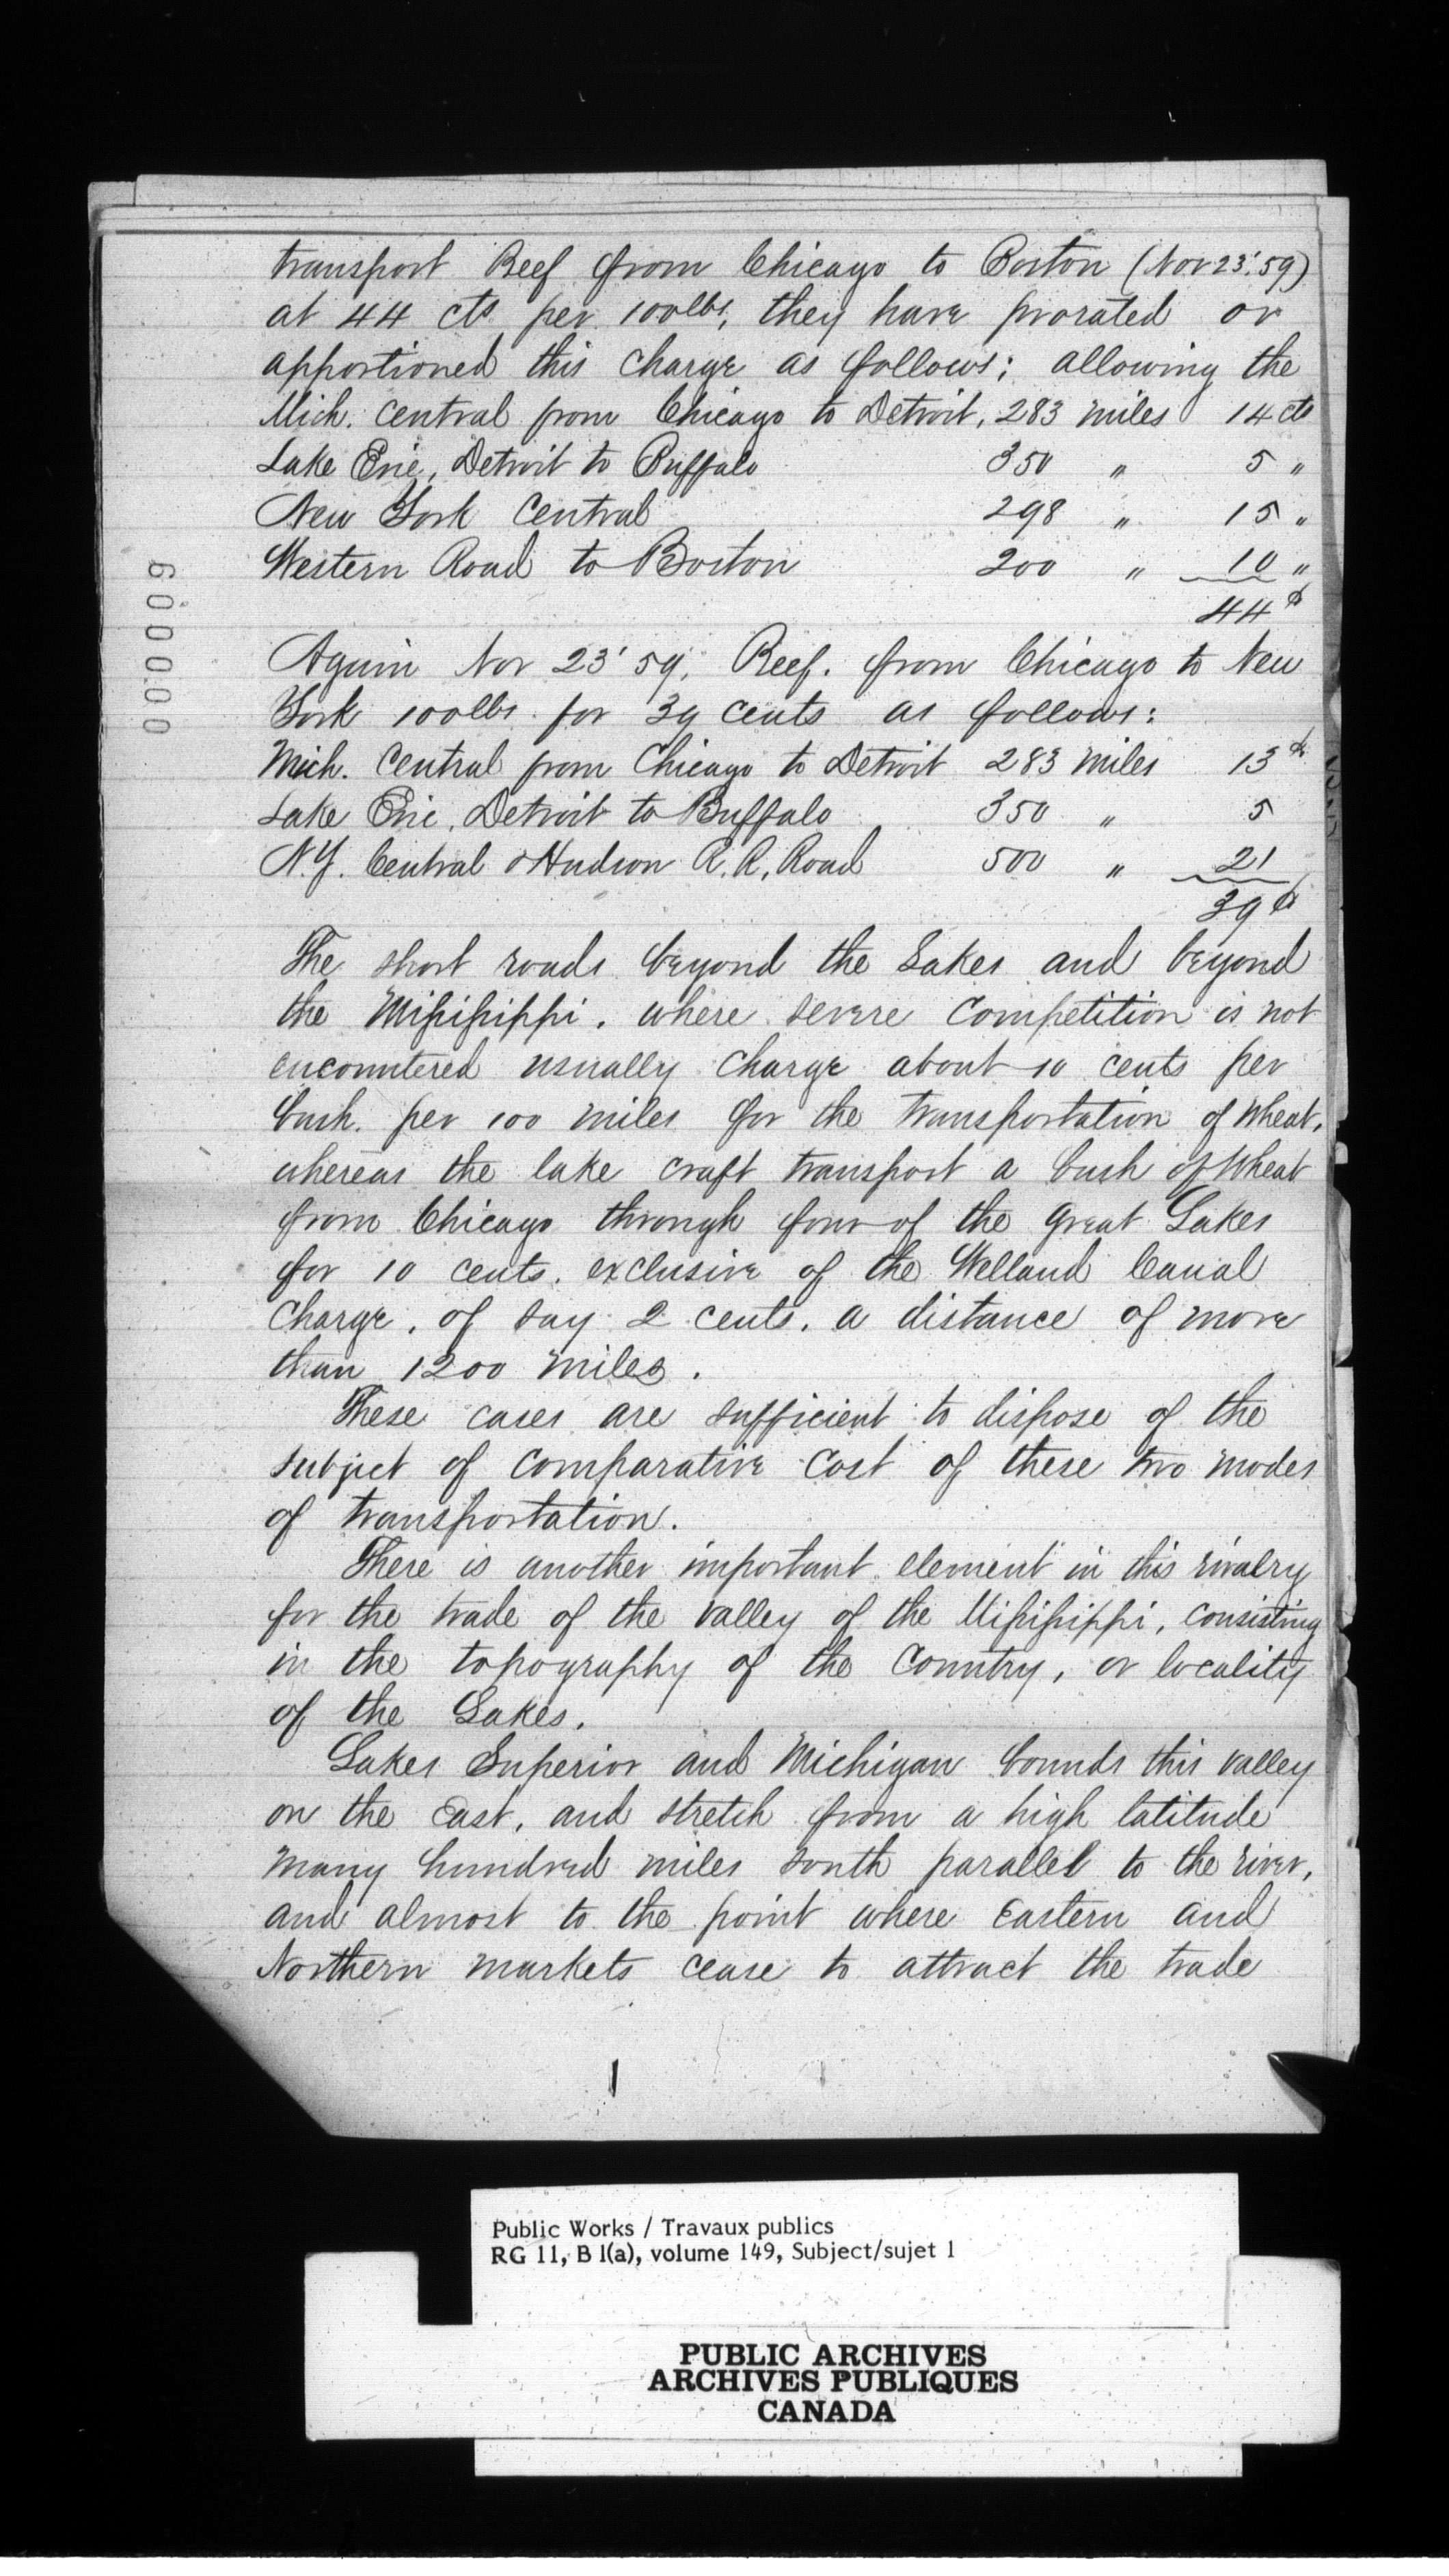 transport Beef from Chicago to Boston (Nov 23' 59)
at 44 cts per 100lbs, they have prorated or
apportioned this charge as follows; allowing the
Mich. Central from Chicago to Detroit, 283 miles 14 cts
Lake Erie, Detroit to Buffalo 350 " 5 "
New York Central 298 " 15 "
Western Road to Boston 200 " 10 "
44 ¢
Again Nov 23' 59, Beef. from Chicago to New
York 100lbs. for 39 cents as follows:
Mich. Central from Chicago to Detroit 283 miles 13 ¢
Lake Erie, Detroit to Buffalo 350 " 5
N.Y. Central & Hudson R. R. Road 500 " 21
39 ¢
The short roads beyond the Lakes and beyond
the Mississippi, where severe competition is not
encountered usually charge about 10 cents per
bush. per 100 miles for the transportation of Wheat,
whereas the lake craft transport a bush of Wheat
from Chicago through four of the Great Lakes
for 10 cents, exclusive of the Welland Canal
Charge, of say 2 cents, a distance of more
than 1200 miles.
These cases are sufficient to dispose of the
subject of comparative cost of these two modes
of transportation.
There is another important element in this rivalry
for the trade of the valley of the Mississippi, consisting
in the topography of the Country, or locality
of the Lakes.
Lakes Superior and Michigan bounds this valley
on the East, and stretch from a high latitude
many hundred miles south parallel to the river,
and almost to the point where Eastern and
Northern markets cease to attract the trade
000009
Public Works / Travaux publics
RG 11, B 1(a), volume 149, Subject/sujet 1
PUBLIC ARCHIVES
ARCHIVES PUBLIQUES
CANADA